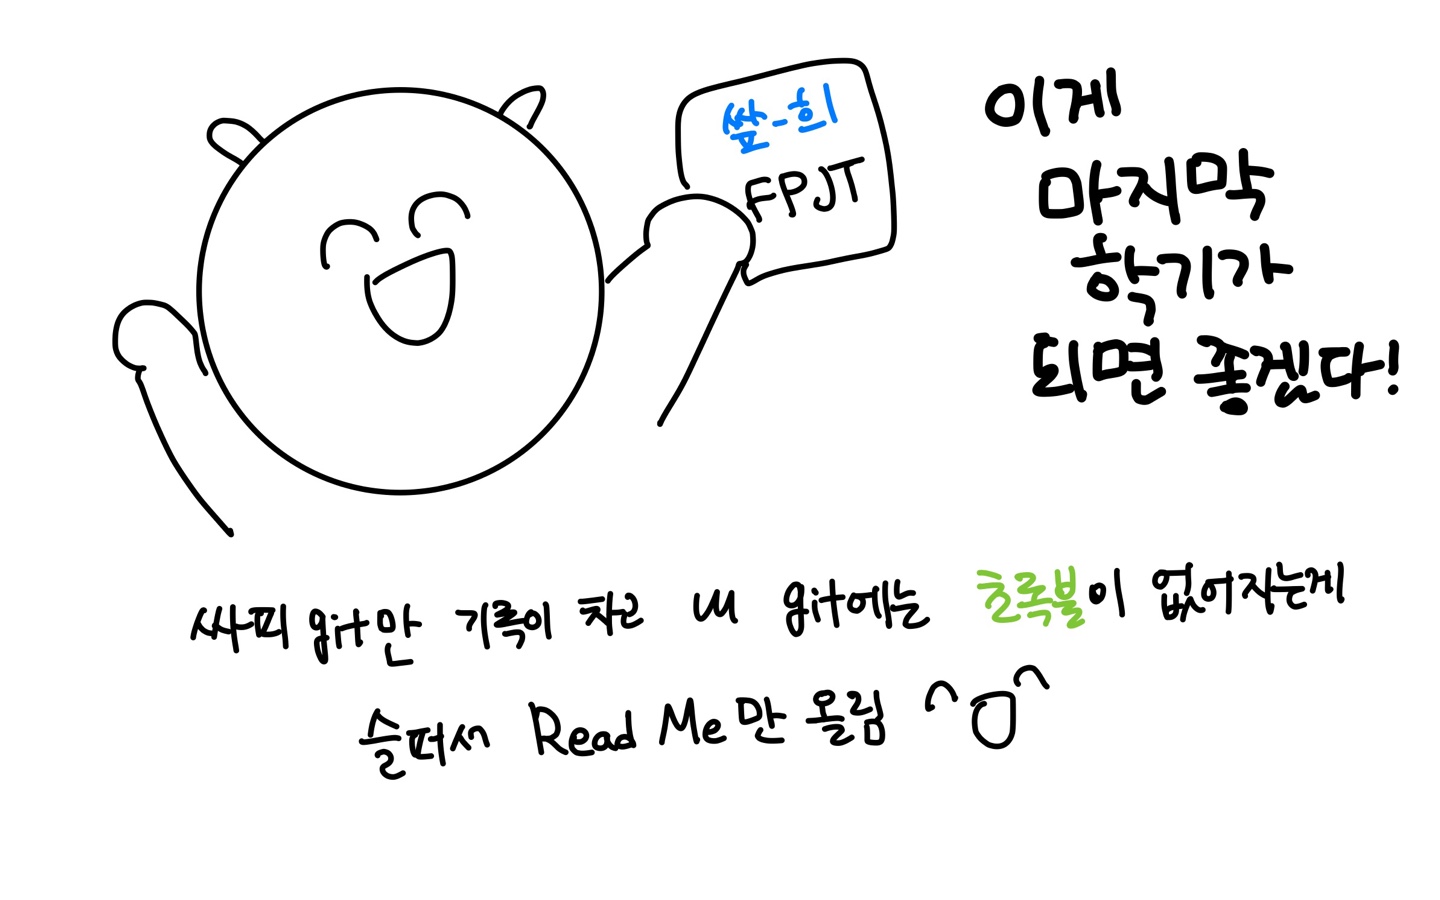 쌒-희
FPJT
이게
마지막
학기가
되면 좋겠다!
싸피 git만 기록이 차고 내 git에는 초록불이 없어지는게
슬퍼서 Read Me만 올림 ^O^